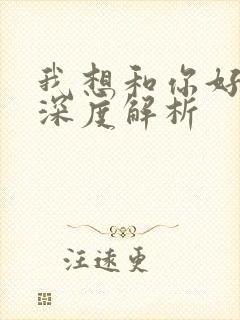 我想和你好
深度解析
汪速更